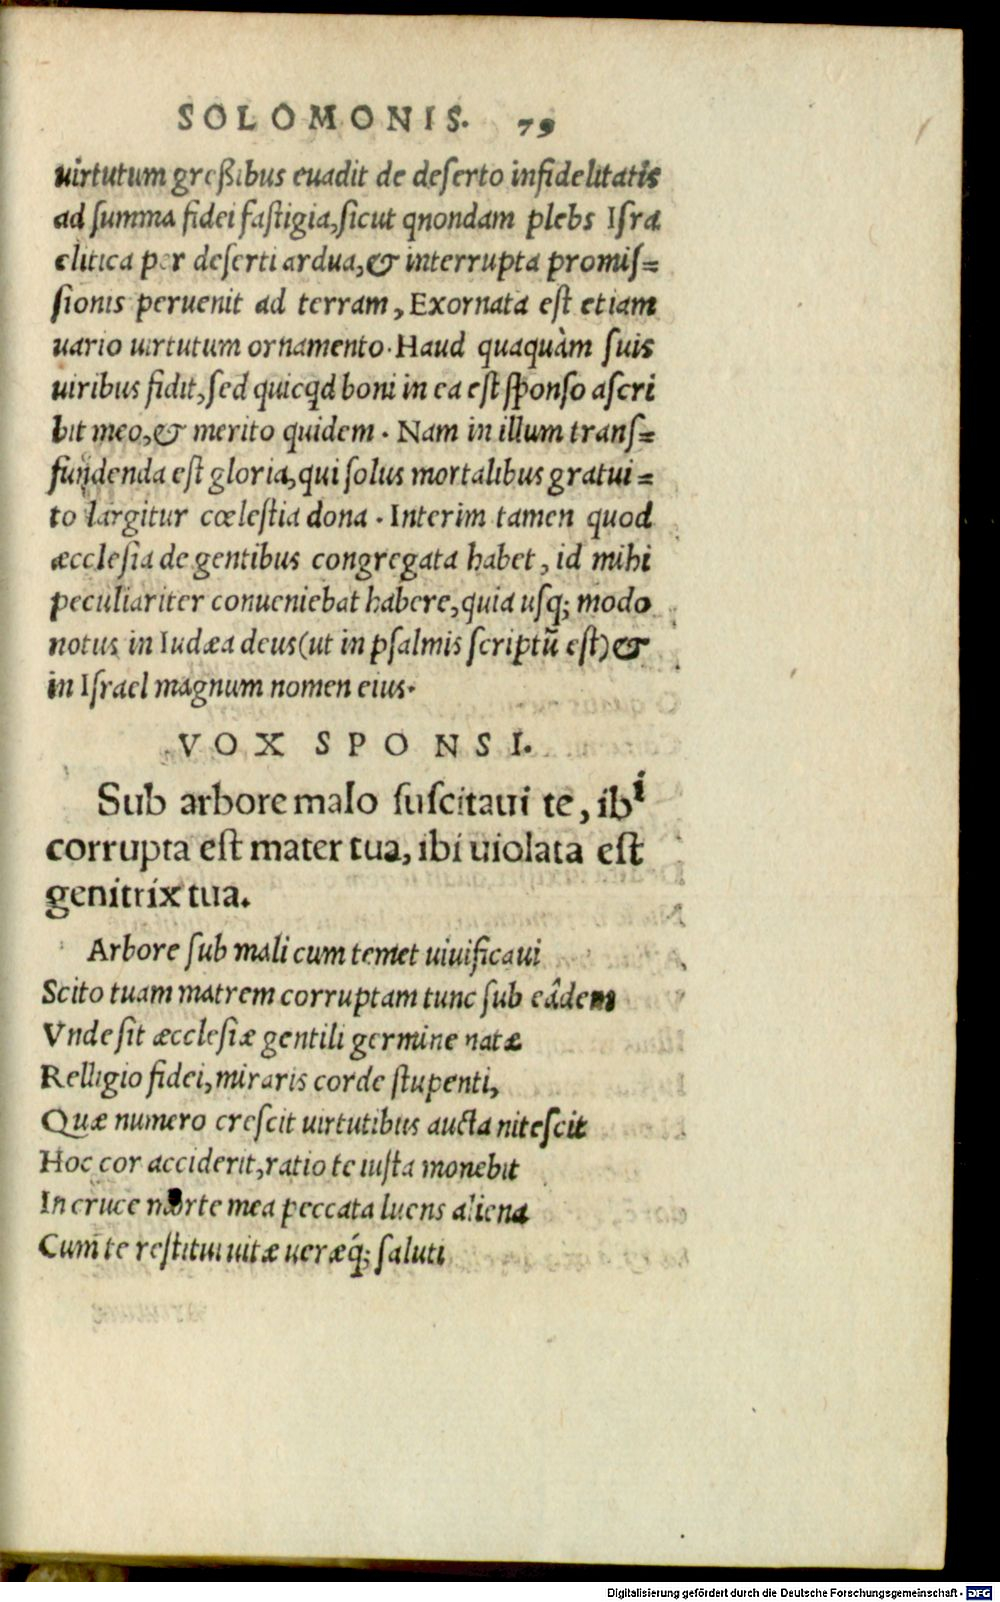 SOLOMONIS. 79
uirtutum greßibus euadit de deserto infidelitatis
ad summa fidei fastigia, sicut qnondam plebs Isra
elitica per deserti ardua, & interrupta promis=
sionis peruenit ad terram, Exornata est etiam
uario uirtutum ornamento. Haud quaquàm suis
uiribus fidit, sed quicqd boni in ea est sponso ascri
bit meo, & merito quidem. Nam in illum trans=
fundenda est gloria, qui solus mortalibus gratui=
to largitur cœlestia dona. Interim tamen quod
æcclesia de gentibus congregata habet, id mihi
peculiariter conueniebat habere, quia usq; modo
notus in Iudæa deus (ut in psalmis scriptũ est) &
in Israel magnum nomen eius.
VOX SPONSI.
Sub arbore malo suscitaui te, ibi
corrupta est mater tua, ibi uiolata est
genitrix tua.
Arbore sub mali cum temet uiuificaui
Scito tuam matrem corruptam tunc sub eâdem
Vnde sit æcclesiæ gentili germine natæ
Relligio fidei, miraris corde stupenti,
Quæ numero crescit uirtutibus aucta nitescit
Hoc cor acciderit, ratio te iusta monebit
In cruce morte mea peccata luens aliena
Cum te restitui uitæ ueræq́; saluti
Digitalisierung gefördert durch die Deutsche Forschungsgemeinschaft - DFG